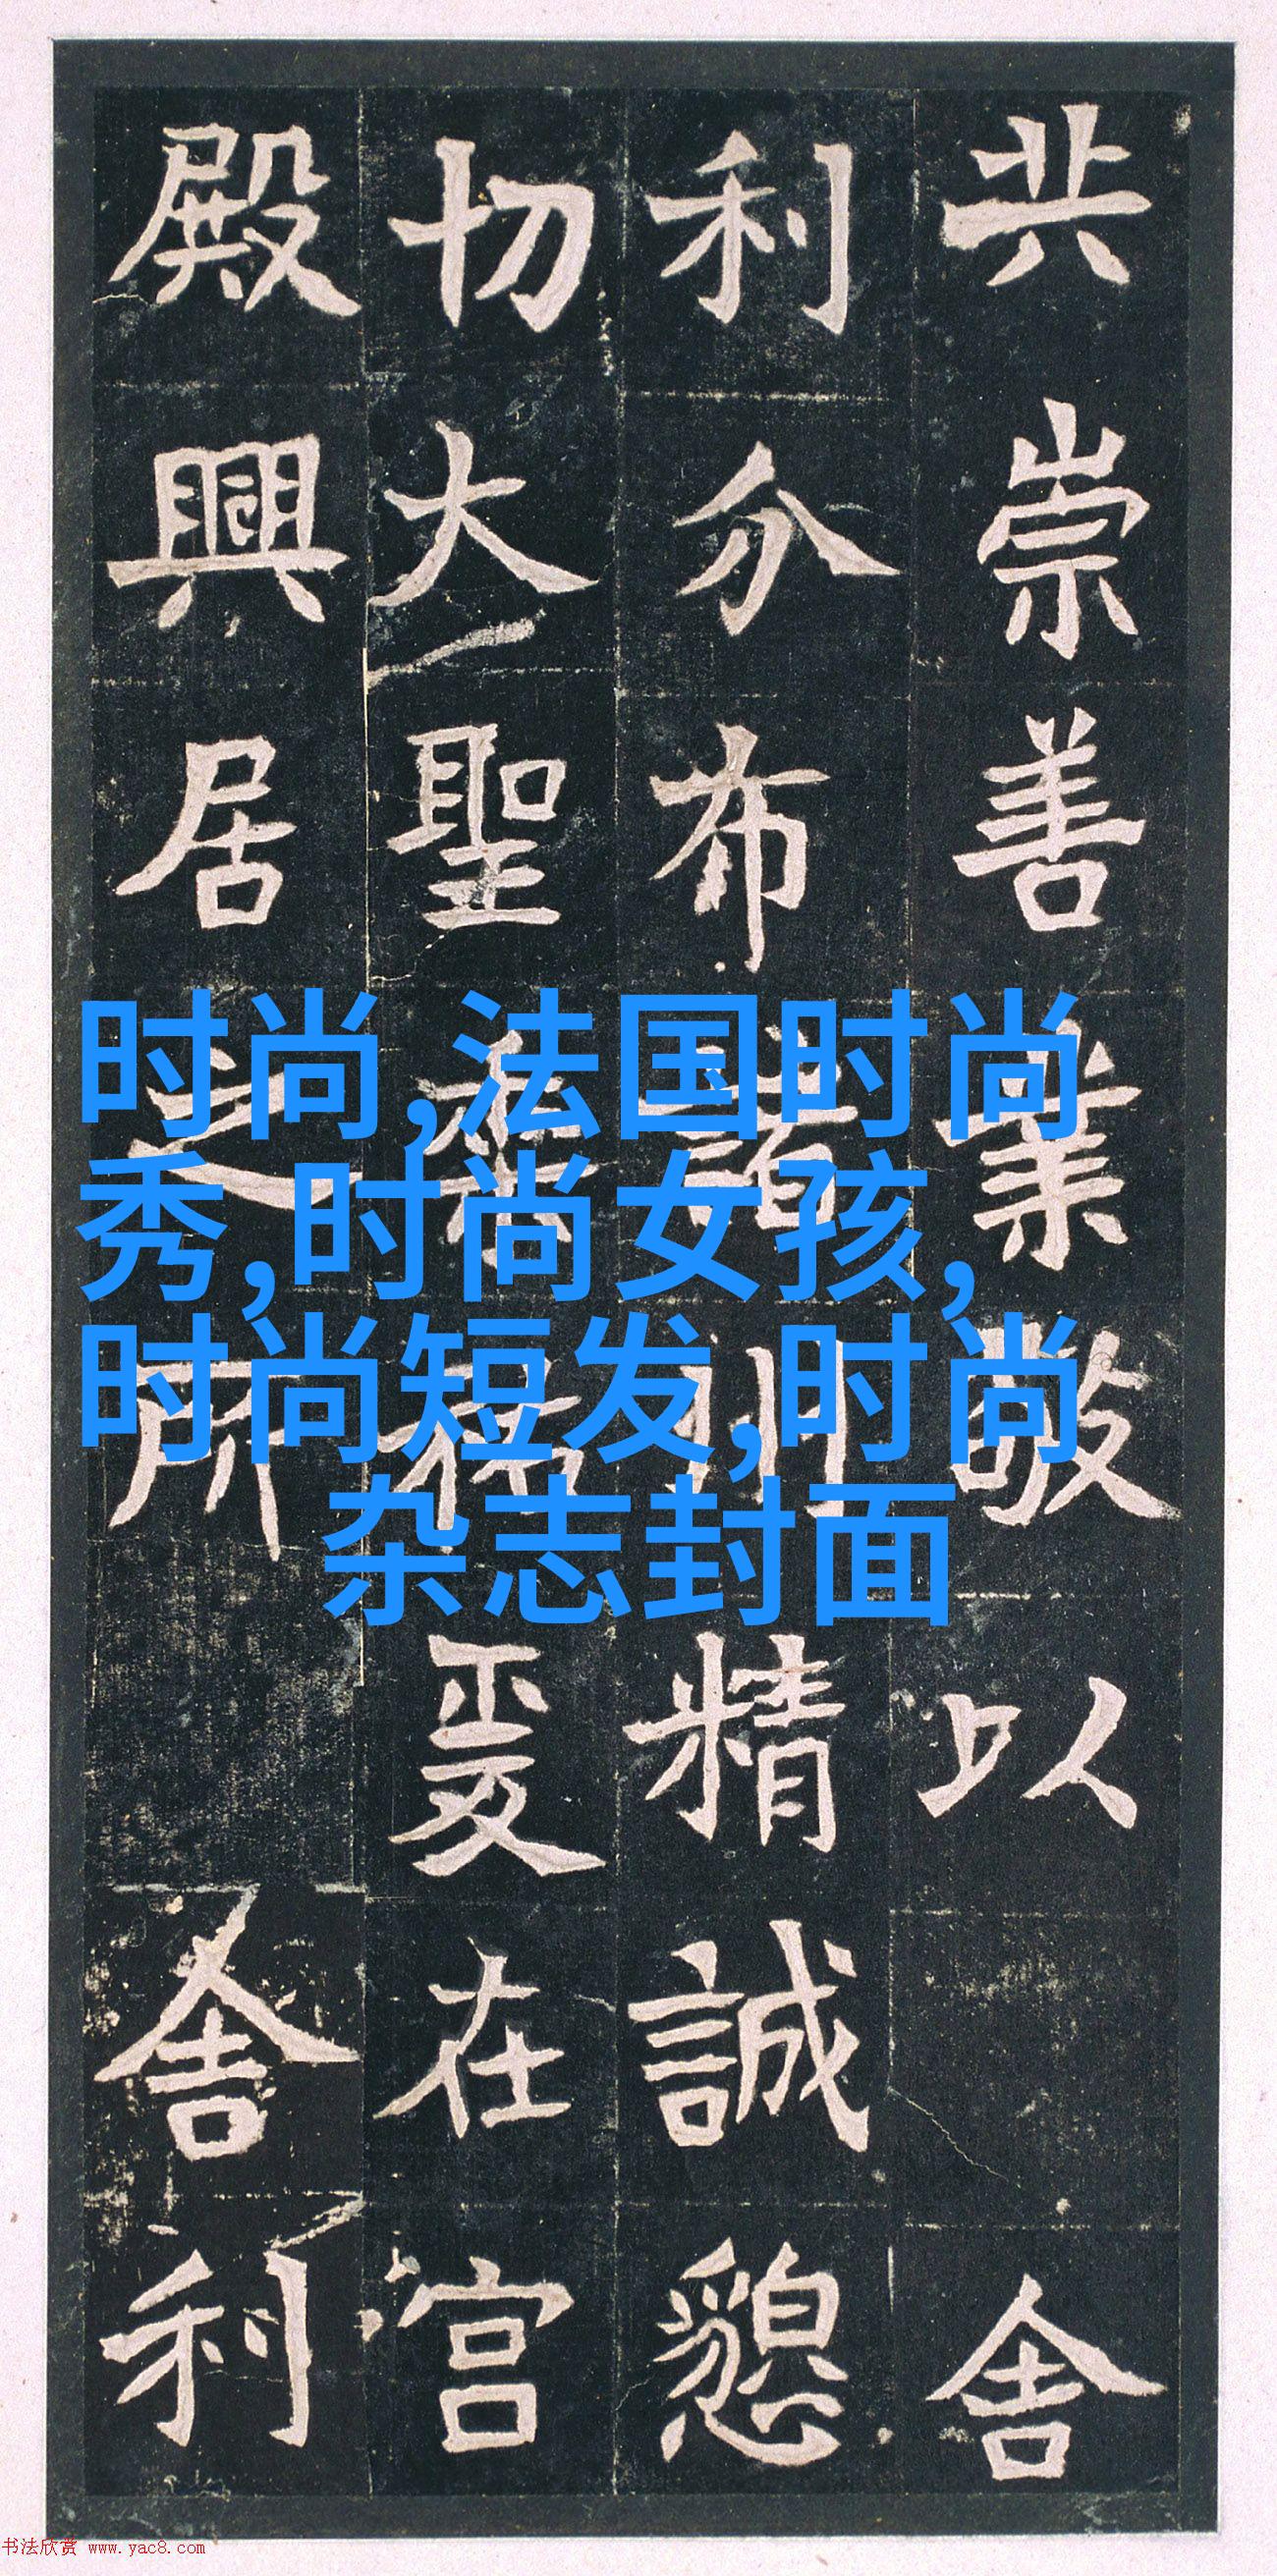 共崇善業敬以 舍
利分布諸州精誠懇
切大聖垂慈𢚩在宫
殿興居之所 舍利
时尚,法国时尚
秀,时尚女孩,
时尚短发,时尚
杂志封面
书法欣赏 www.yac8.com